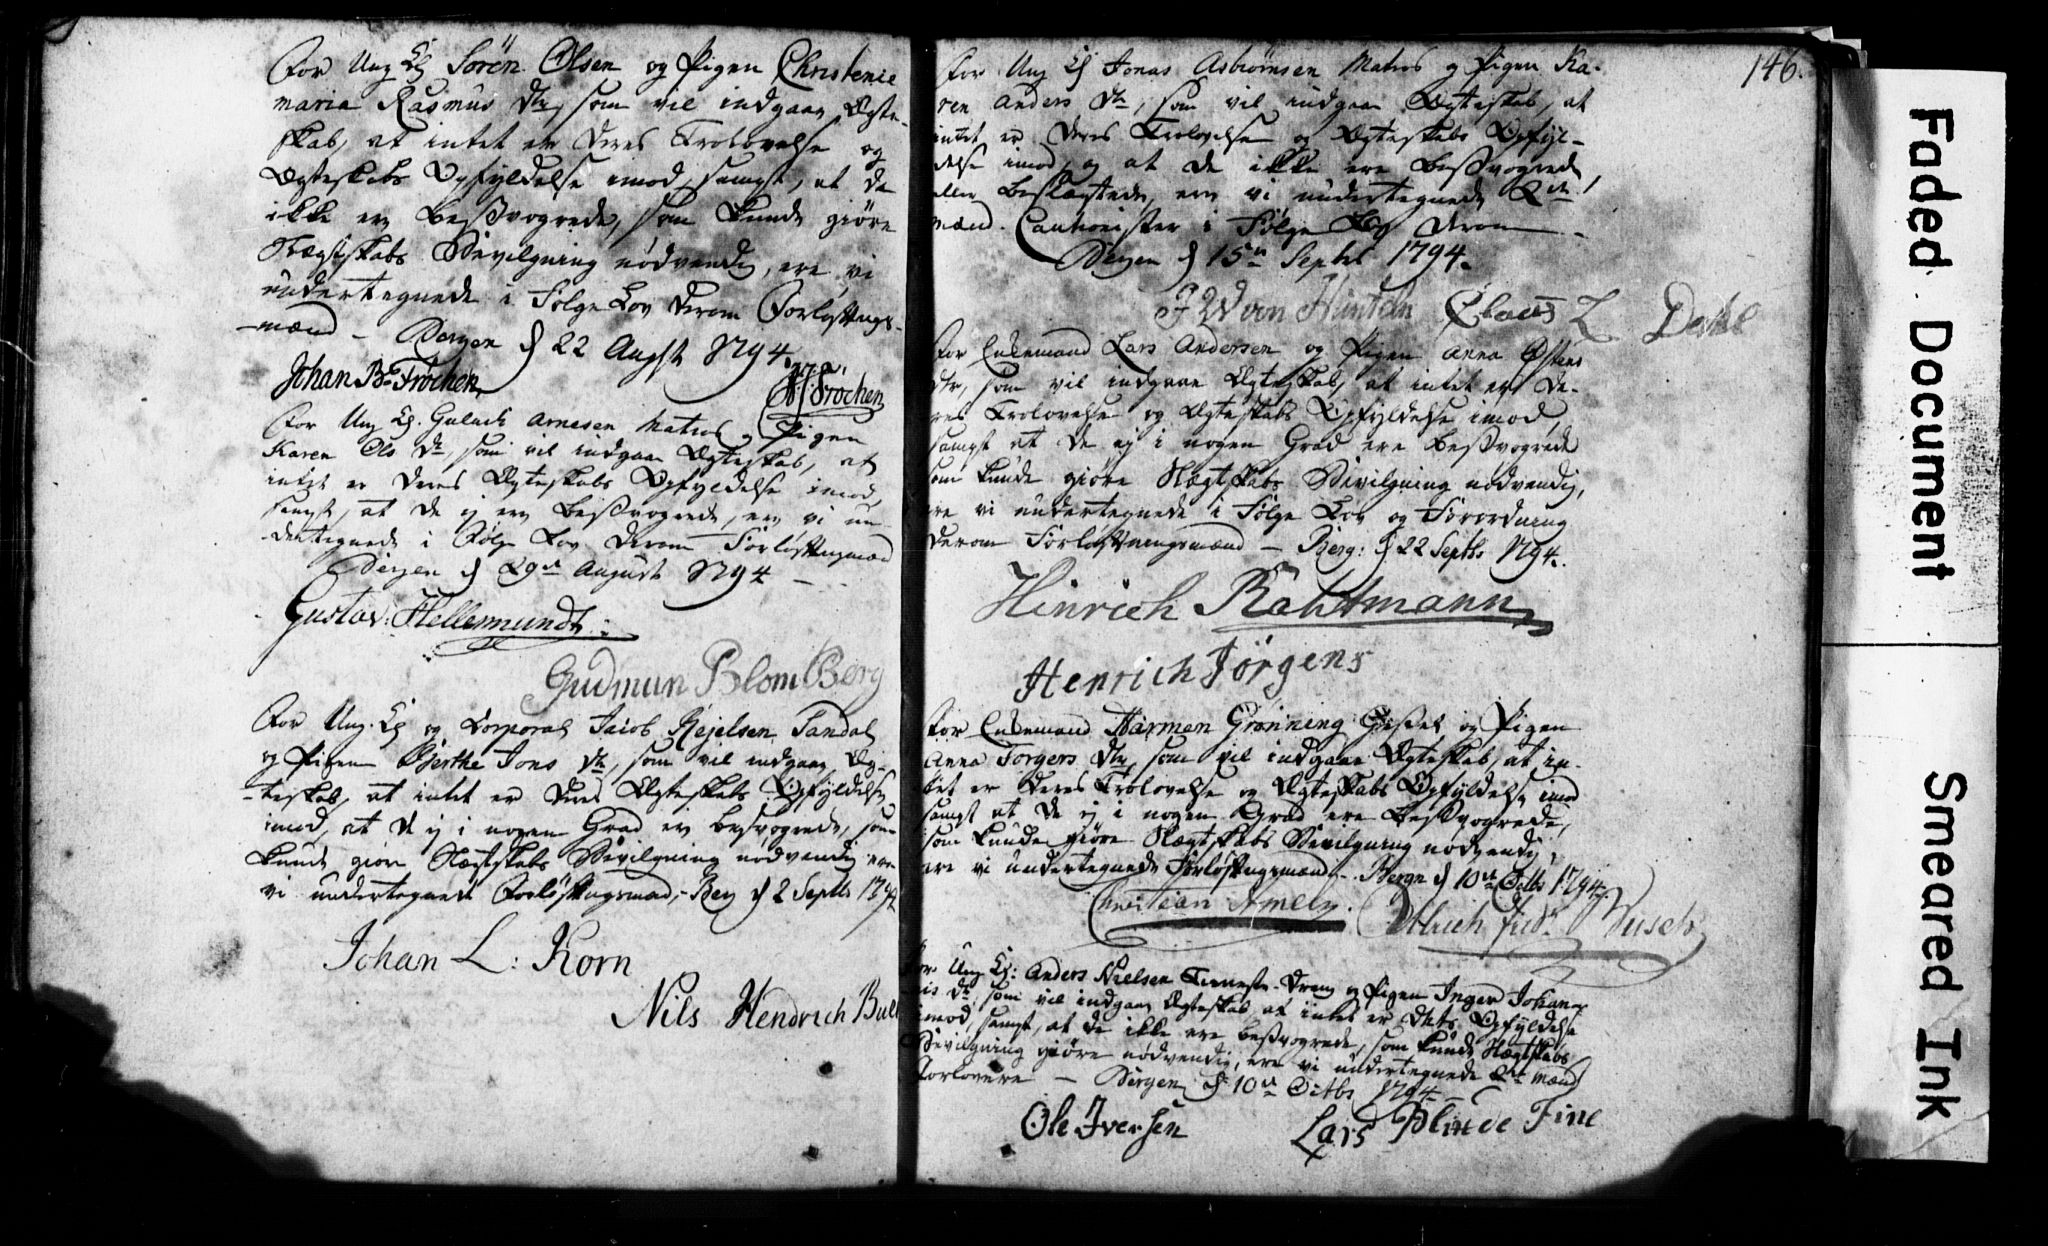 For Ung K Sören Olsen og Pigen Christenie
maria Rasmus dtr, som vil indgaae Ægte-
skab, at intet er deres Trolovelse og
Ægteskabs Opfyldelse imod, samt, at de
ikke ere Besvogrede, som kunde giöre
Slægtskabs Bevilgning nödvendig, ere vi
undertegnede i Følge Lov derom Forløftnings-
-mænd - Bergen d 22 Augst 1794.
Johan Trochen Trochen
For Ung K. Gulach Arnesen Matros og Pigen
Karen Ols dr, som vil indgaae Ægteskab, at
intet er deres Ægteskabs Opfyldelse imod,
samt, at de ej ere Besvogrede, ere vi un-
dertegnede i Følge Lov derom Forløftningsmænd
Bergen d 29de August 1794
Gustav: Hellemundt:
Gudmun Blom Berg
For Ung. K og Corporal Jacob Kejelsen Sandal
og Pigen Berthe Jons dr, som vil indgaae Æg-
-teskab, at intet er deres Ægteskabs Opfyldelse
imod, at de ej i nogen Grad ere besvogrede, som
kunde giøre Slægtskabs Bevilgning nødvendig ere
vi undertegnede Forløftningsmænd, - Berg d 2 Septbr 1794
Johan L: Korn
Nils Hendrich Bull
146.
For Ung K Jonas Asbiörnsen Matros og Pigen Ka-
ren Anders dr, som vil indgaae Ægteskab, at
intet er deres Trolovelse og Ægteskabs Opfyl-
delse imod, og at de ikke ere Besvogrede,
eller Beslægtede, ere vi undertegnede 2de
mænd Cautionister i Følge Lov derom
Bergen d 15de Septbr 1794.
J W von Hünteln Claus L Dahl
For Enkemand Lars Andersen og Pigen Anna Østens
dtr, som vil indgaae Ægteskab, at intet er de-
res Trolovelse og Ægteskabs Opfyldelse imod,
samt at de ej i nogen Grad ere besvogrede
som kunde giöre Slægtskabs Bevilgning nödvendig,
ere vi undertegnede i Følge Lov og Forordning
derom Forløftningsmænd - Berg: d 22 Septbr 1794.
Hinrich Rahtmann
Henrich Jørgens
For Enkemand Harmen Grønning og Pigen
Anna Torgers dtr, som vil indgaae Ægteskab, at in-
tet er deres Trolovelse og Ægteskabs Opfyldelse imod
samt at de ej i nogen Grad ere Besvogrede,
som kunde giöre Slægtskabs Bevilgning nödvendig,
ere vi undertegnede Forløftningsmænd - Bergen d 10de Octbr 1794.
Christian Amely. Busch
For Ung K: Anders Nielsen Tienneste-Dreng og Pigen Inger Johan-
nis dr, som vil indgaae Ægteskab, at intet er dets Opfyldelse
imod, samt, at de ikke ere besvogrede, som kunde Slægtskabs
Bevilgning giöre nödvendig, ere vi undertegnede 2de Mænd
Forlovere - Bergen d 10de Octbr 1794
Ole Iversen Lars Fine
Faded Document
Smeared Ink